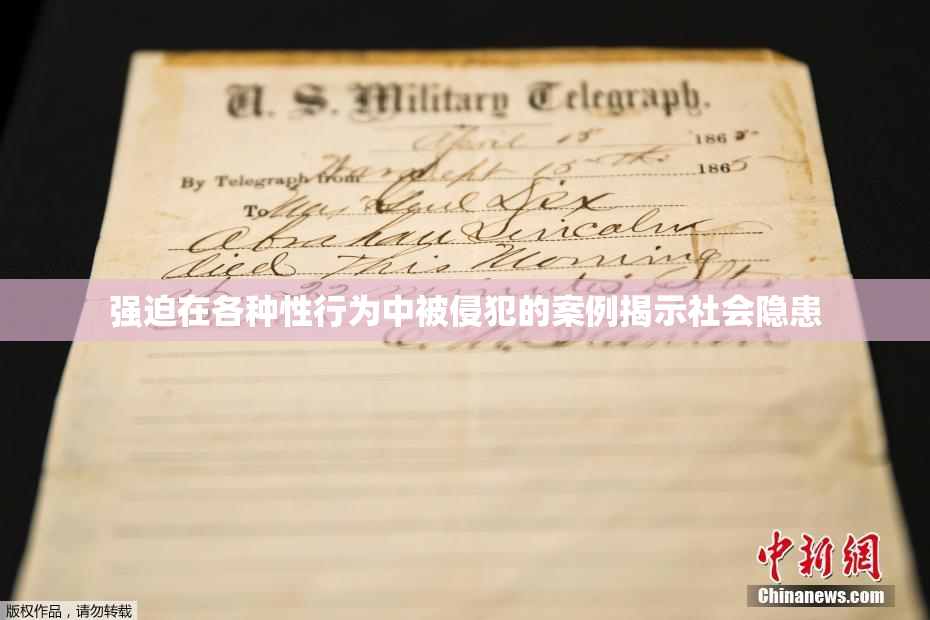 U. S. Military Telegraph.
April 15 1865
By Telegraph from War Dept 15th 1865
To Maj Genl Dix
Abraham Lincoln
died This Morning
at 22 minutes after
强迫在各种性行为中被侵犯的案例揭示社会隐患
E. M. Stanton
中新网
Chinanews.com
版权作品，请勿转载